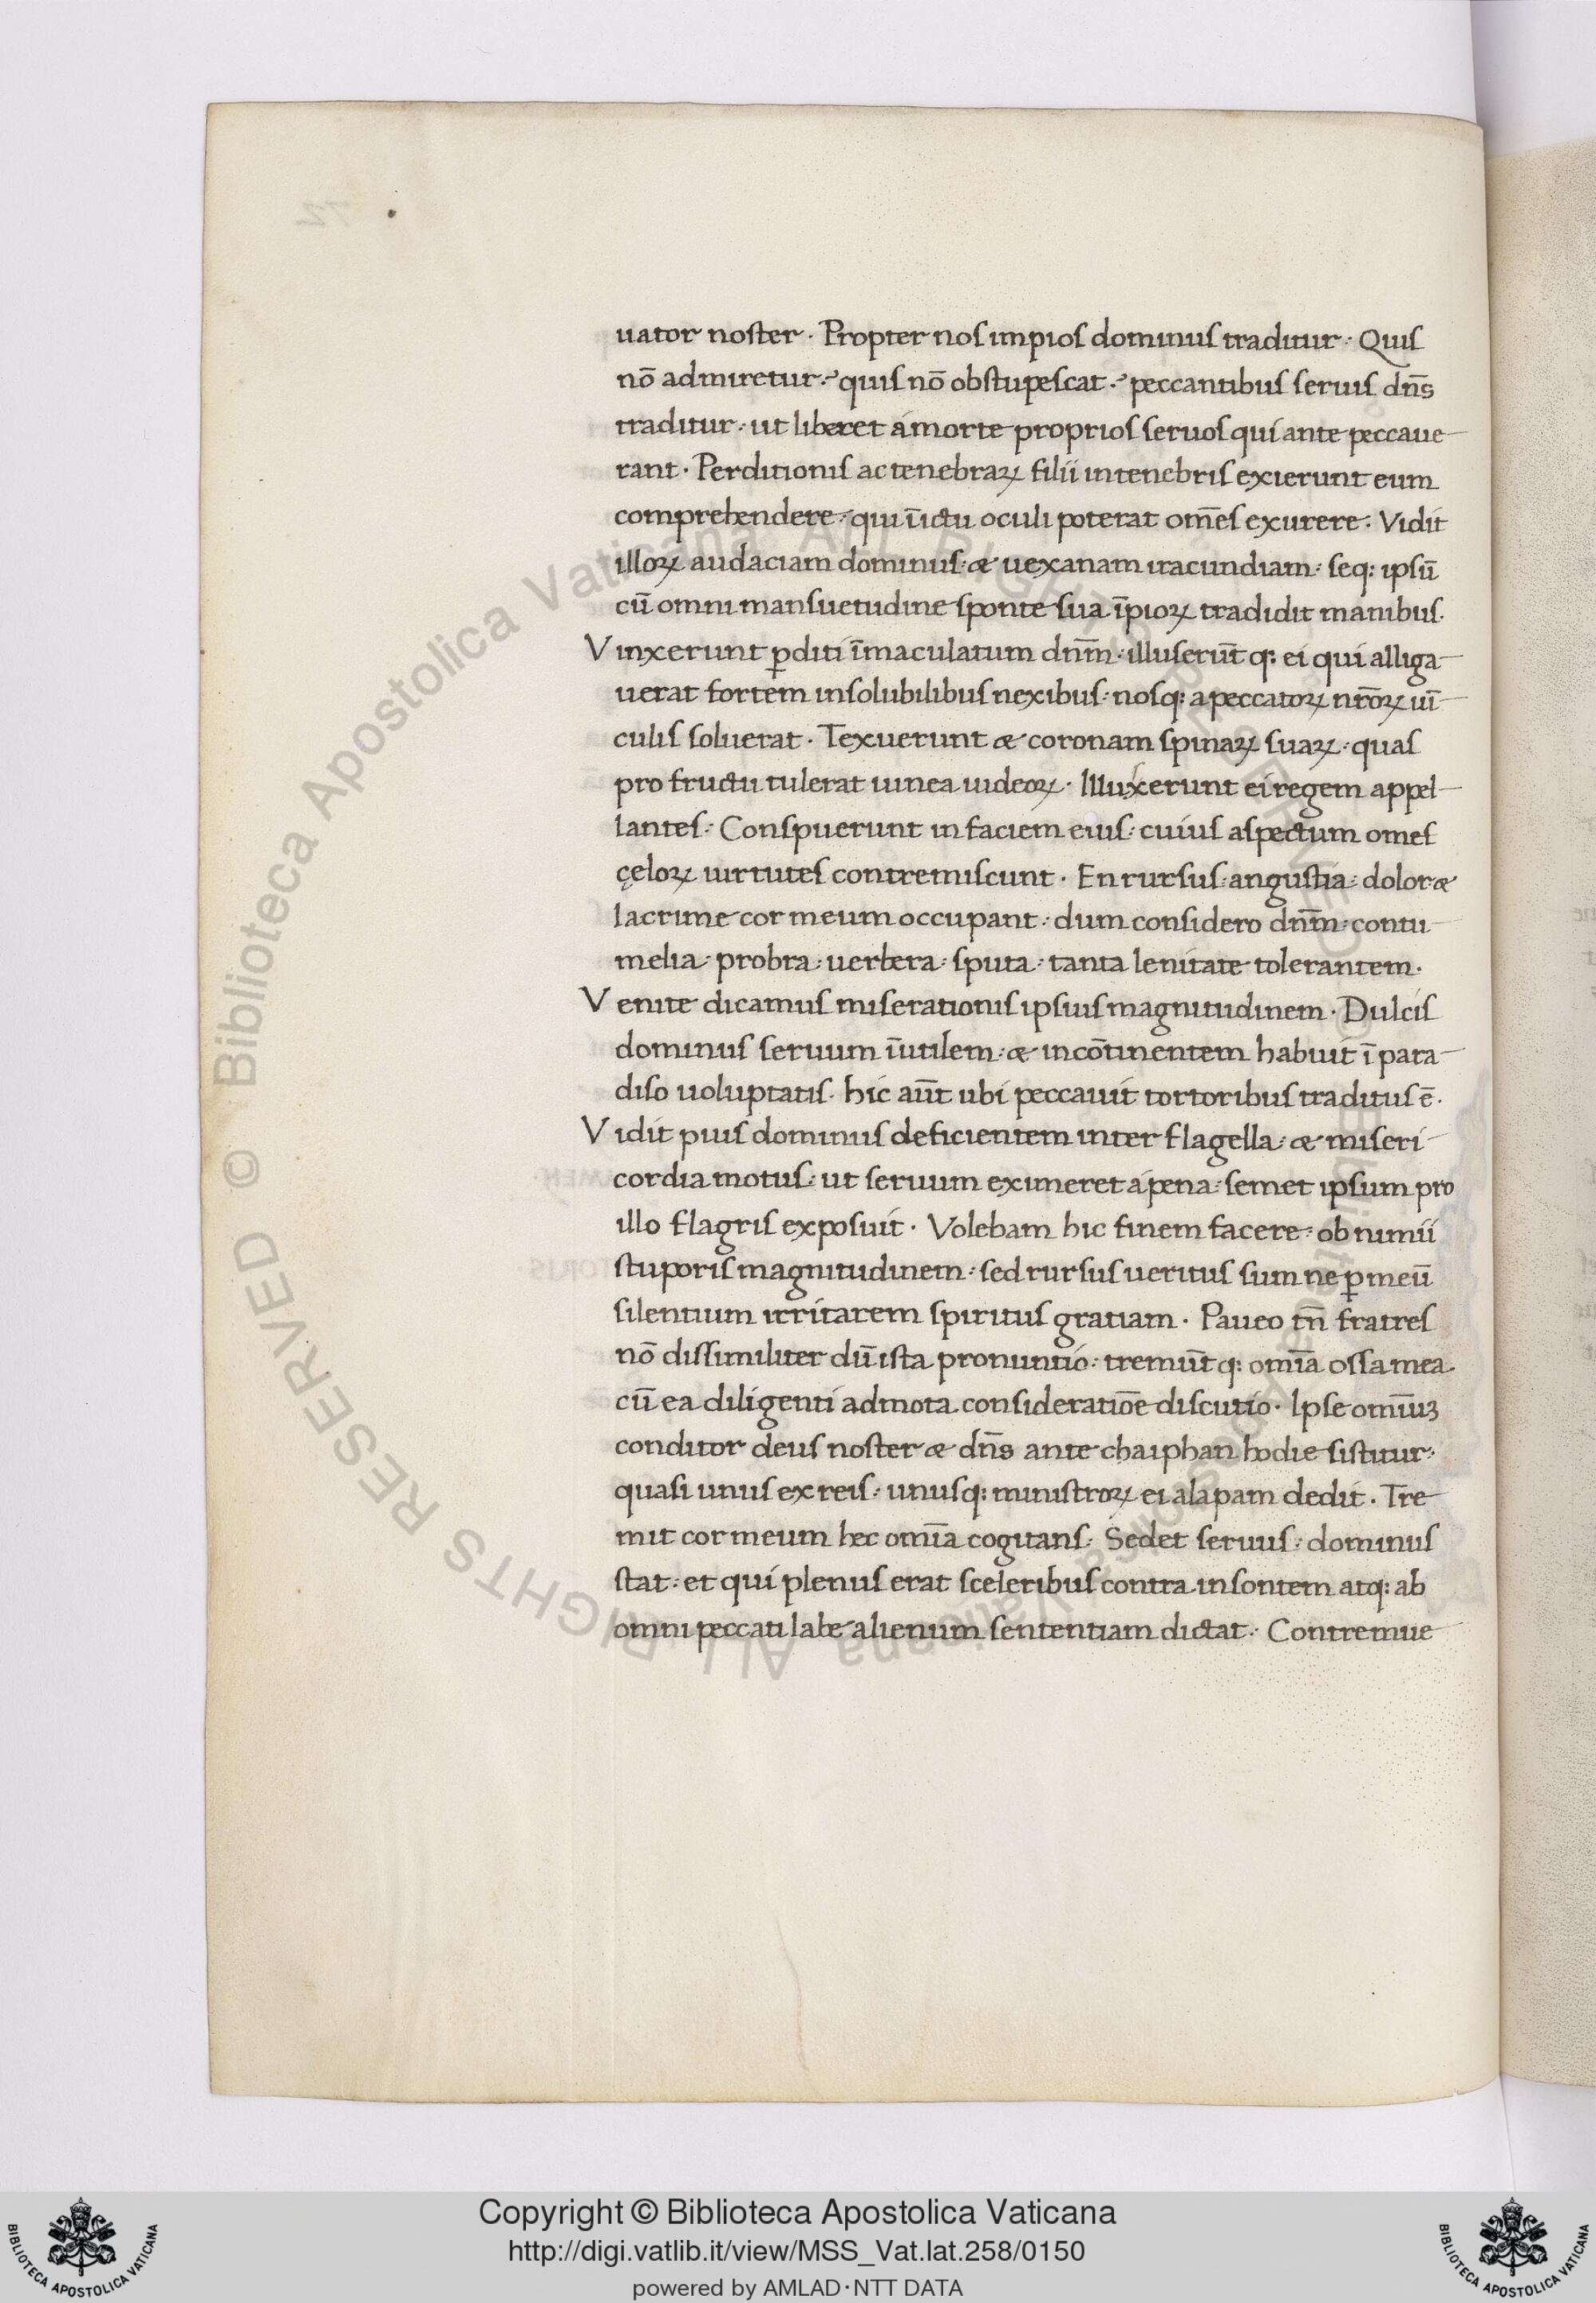 uator noster · Propter nos impios dominus traditur · Quis
nō admiretur? quis nō obstupescat? peccantibus seruis dn̄s
traditur: ut liberet á morte proprios seruos qui ante peccaue-
rant · Perditionis ac tenebraꝝ filii in tenebris exierunt eum
comprehendere: qui ī ictu oculi poterat om̄es exurere · Vidit
illoꝝ audaciam dominus: & uexanam iracundiam: seq: ipsū
cū omni mansuetudine sponte sua īpioꝝ tradidit manibus.
Vinxerunt ꝑditi īmaculatum dn̄m: illuserūt q: ei qui alliga-
uerat fortem insolubilibus nexibus: nosq: a peccatoꝝ nr̄oꝝ uī-
culis soluerat · Texuerunt & coronam spinaꝝ suaꝝ: quas
pro fructu tulerat uinea iudeoꝝ · Illuxerunt ei regem appel-
lantes: Conspuerunt in faciem eius: cuius aspectum omes
çeloꝝ uirtutes contremiscunt · En rursus: angustia: dolor &
lacrime cor meum occupant: dum considero dn̄m: contu-
melia: probra: uerbera: sputa: tanta lenitate tolerantem.
Venite dicamus miserationis ipsius magnitudinem · Dulcis
dominus seruum īutilem: & incōtinentem habuit ī para-
diso uoluptatis. hic aūt ubi peccauit tortoribus traditus ē.
Vidit pius dominus deficientem inter flagella: & miseri-
cordia motus: ut seruum eximeret á pena: semet ipsum pro
illo flagris exposuit · Volebam hic finem facere: ob nimii
stuporis magnitudinem: sed rursus ueritus sum ne ꝑ meū
silentium irritarem spiritus gratiam · Paueo tn̄ fratres
nō dissimiliter dū ista pronuntio: tremūt q: omīa ossa mea
cū ea diligenti admota consideratiōe discutio · Ipse omīuꝫ
conditor deus noster & dn̄s ante chaiphan hodie sistitur:
quasi unus ex reis: unusq: ministroꝝ ei alapam dedit · Tre-
mit cor meum hec omīa cogitans: Sedet seruus: dominus
stat: et qui plenus erat sceleribus contra insontem atq: ab
omni peccati labe alienum sententiam dictat · Contremue
Copyright © Biblioteca Apostolica Vaticana
http://digi.vatlib.it/view/MSS_Vat.lat.258/0150
powered by AMLAD·NTT DATA